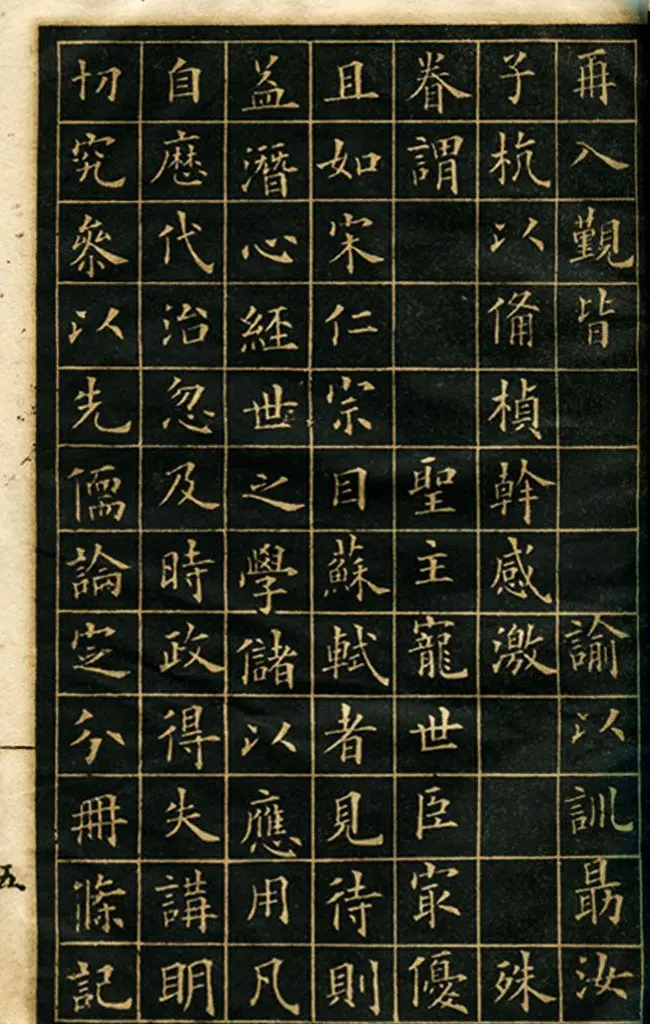 再入覲皆諭以訓勗汝
子杭以備楨幹感激殊
眷謂聖主寵世臣冣優
且如宋仁宗目蘇軾者見待則
益潛心經世之學儲以應用凡
自歷代治忽及時政得失講明
切究叅以先儒論定分冊條記
五